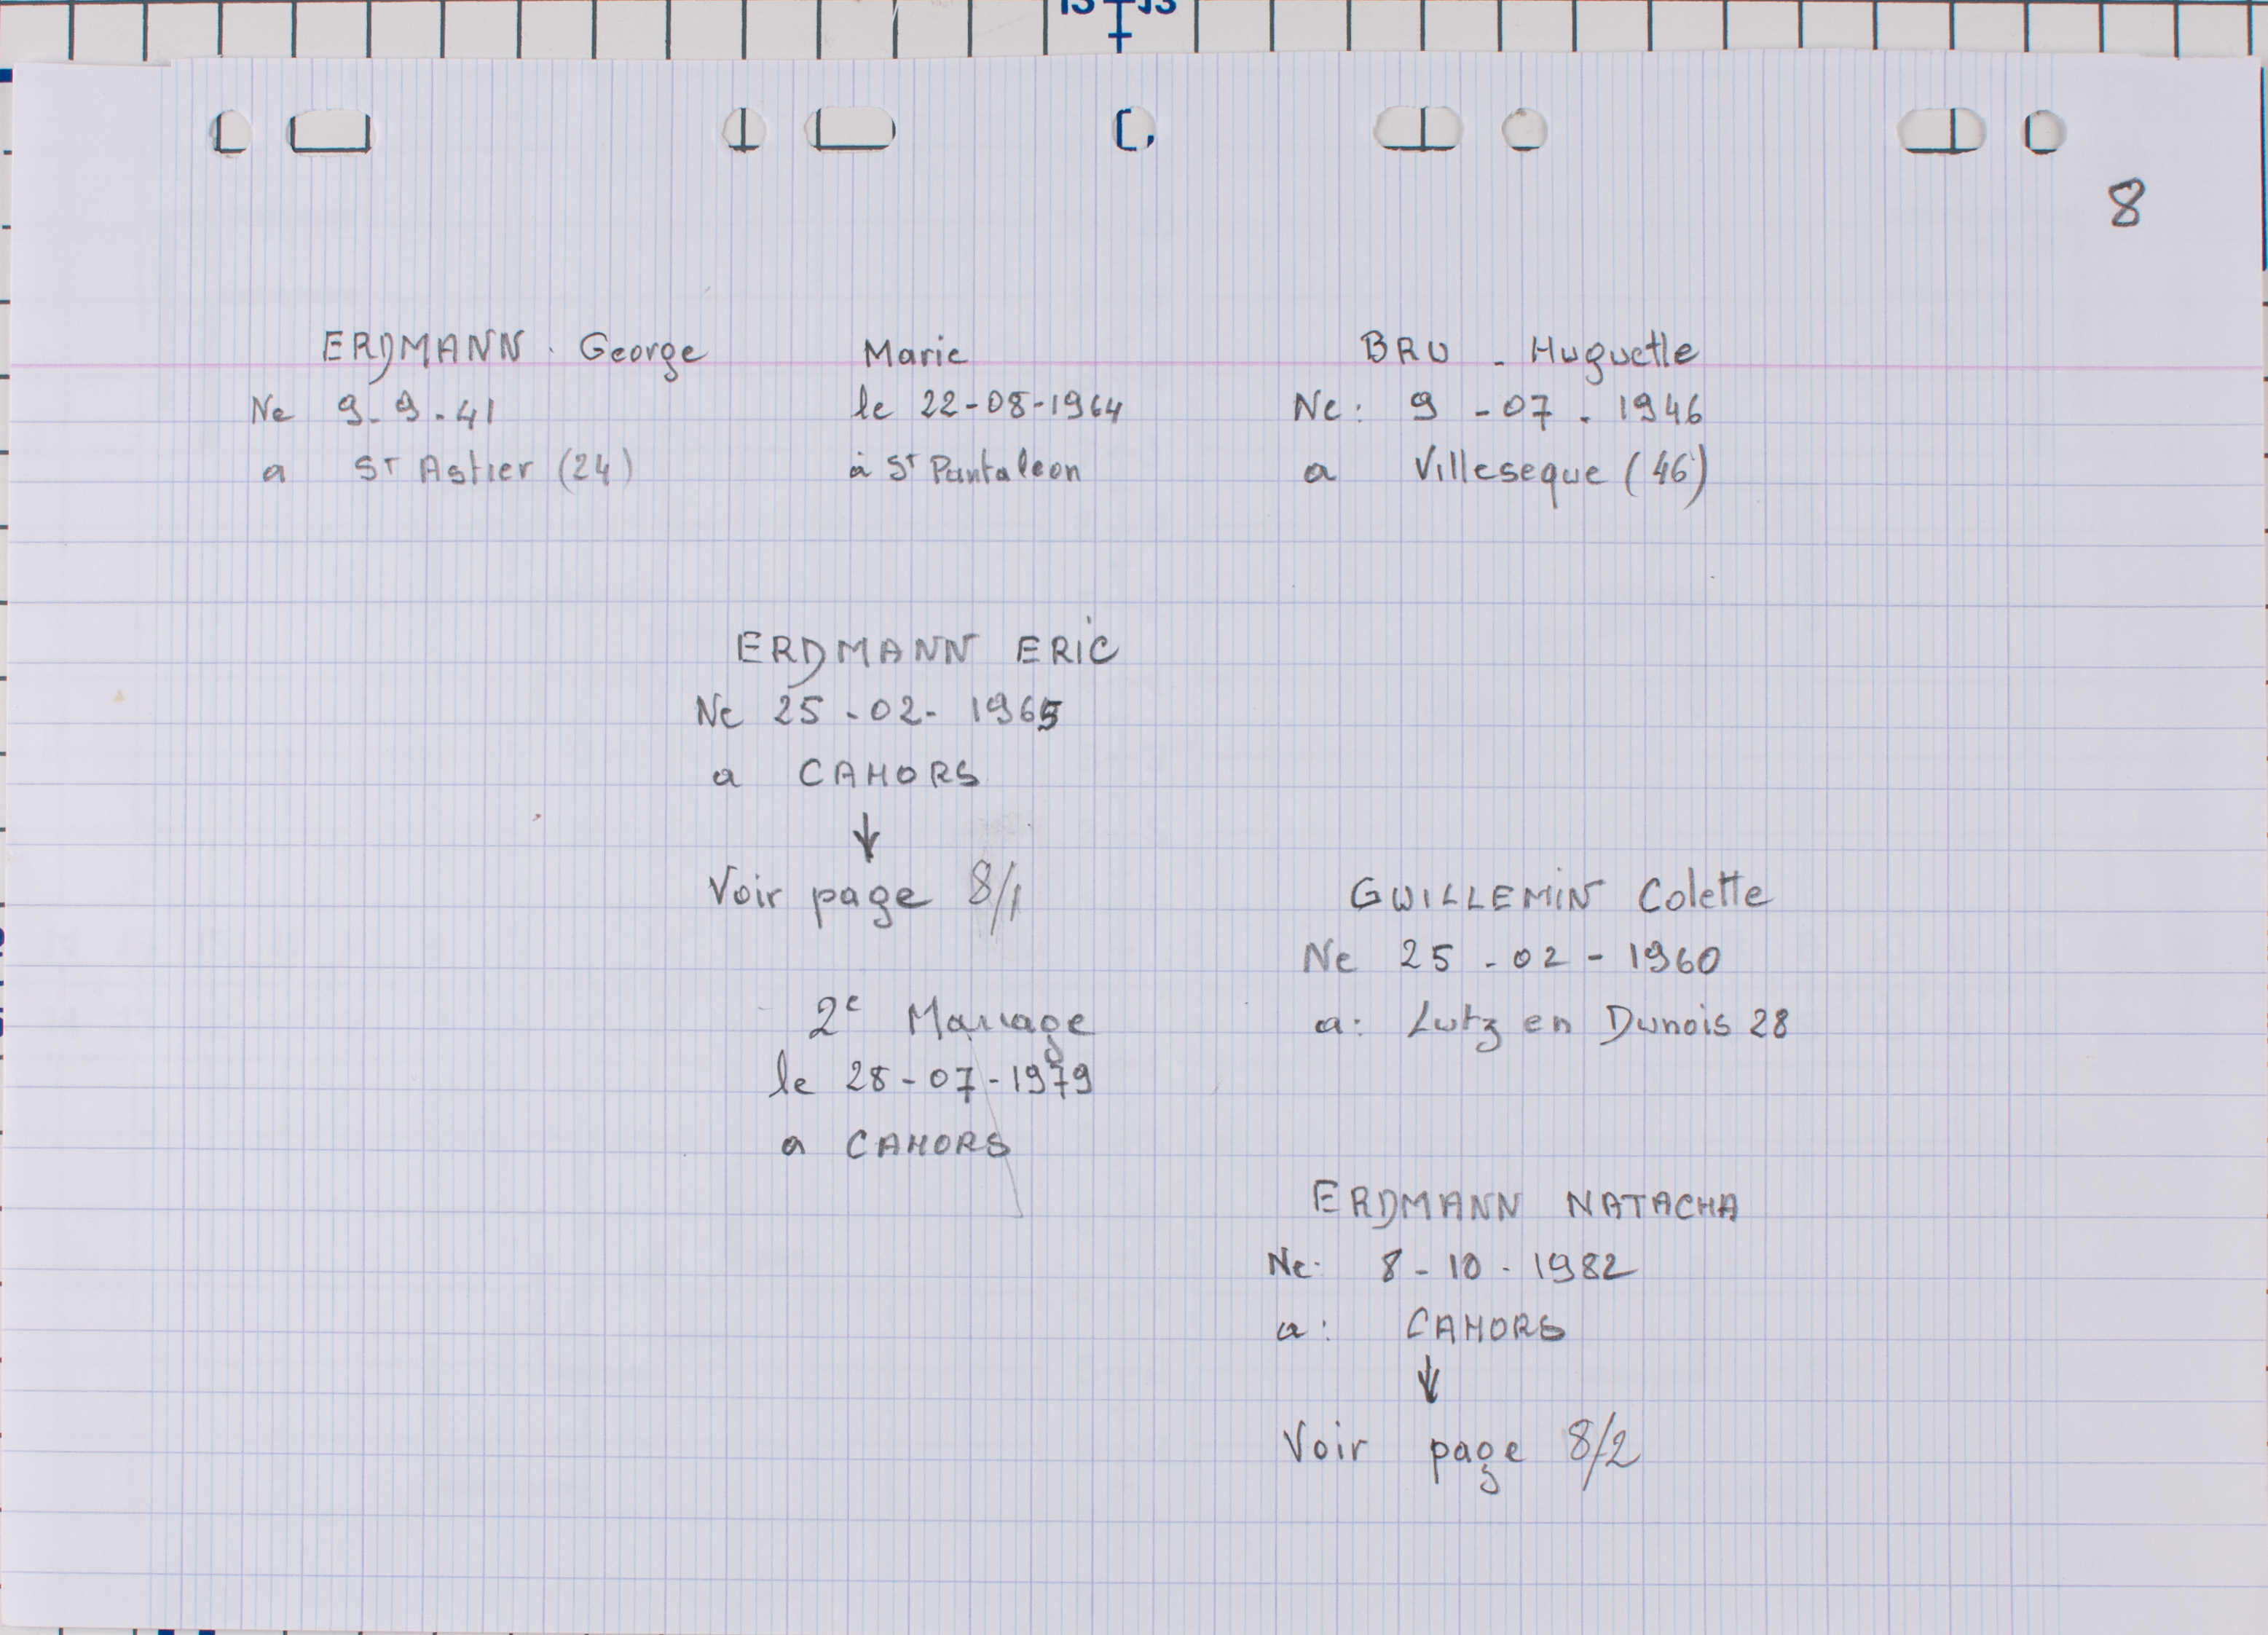 13 13
8
ERDMANN . George Marie BRU - Huguette
Ne 9-9-41 le 22-08-1964 Ne: 9-07-1946
a St Astier (24) à St Pantaleon a Villeseque (46)
ERDMANN ERIC
Ne 25-02-1965
a CAHORS
↓
Voir page 8/1
GUILLEMIN Colette
Ne 25-02-1960
a: Lutz en Dunois 28
2e Mariage
le 28-07-1979
a CAHORS
ERDMANN NATACHA
Ne: 8-10-1982
a: CAHORS
↓
Voir page 8/2